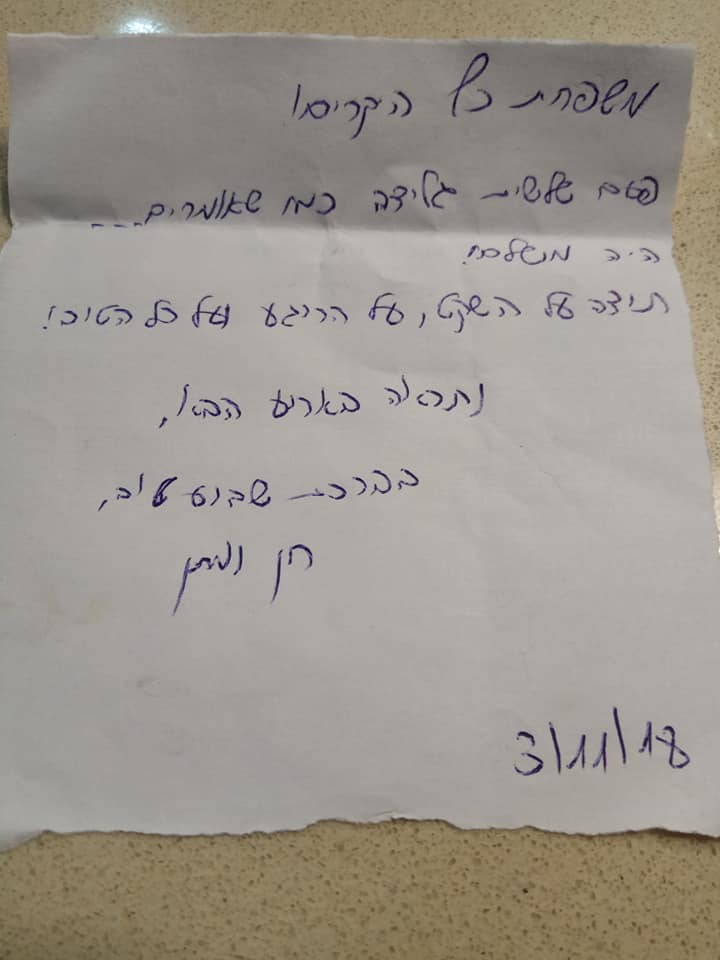 משפחת כץ היקרים!
פעם שלישית גלידה כמו שאומרים...
היה מושלם!
תודה על השקט, על הרוגע ועל כל הטוב!
נתראה באירוע הבא,
בברכת שבוע טוב,
חן
3/11/18